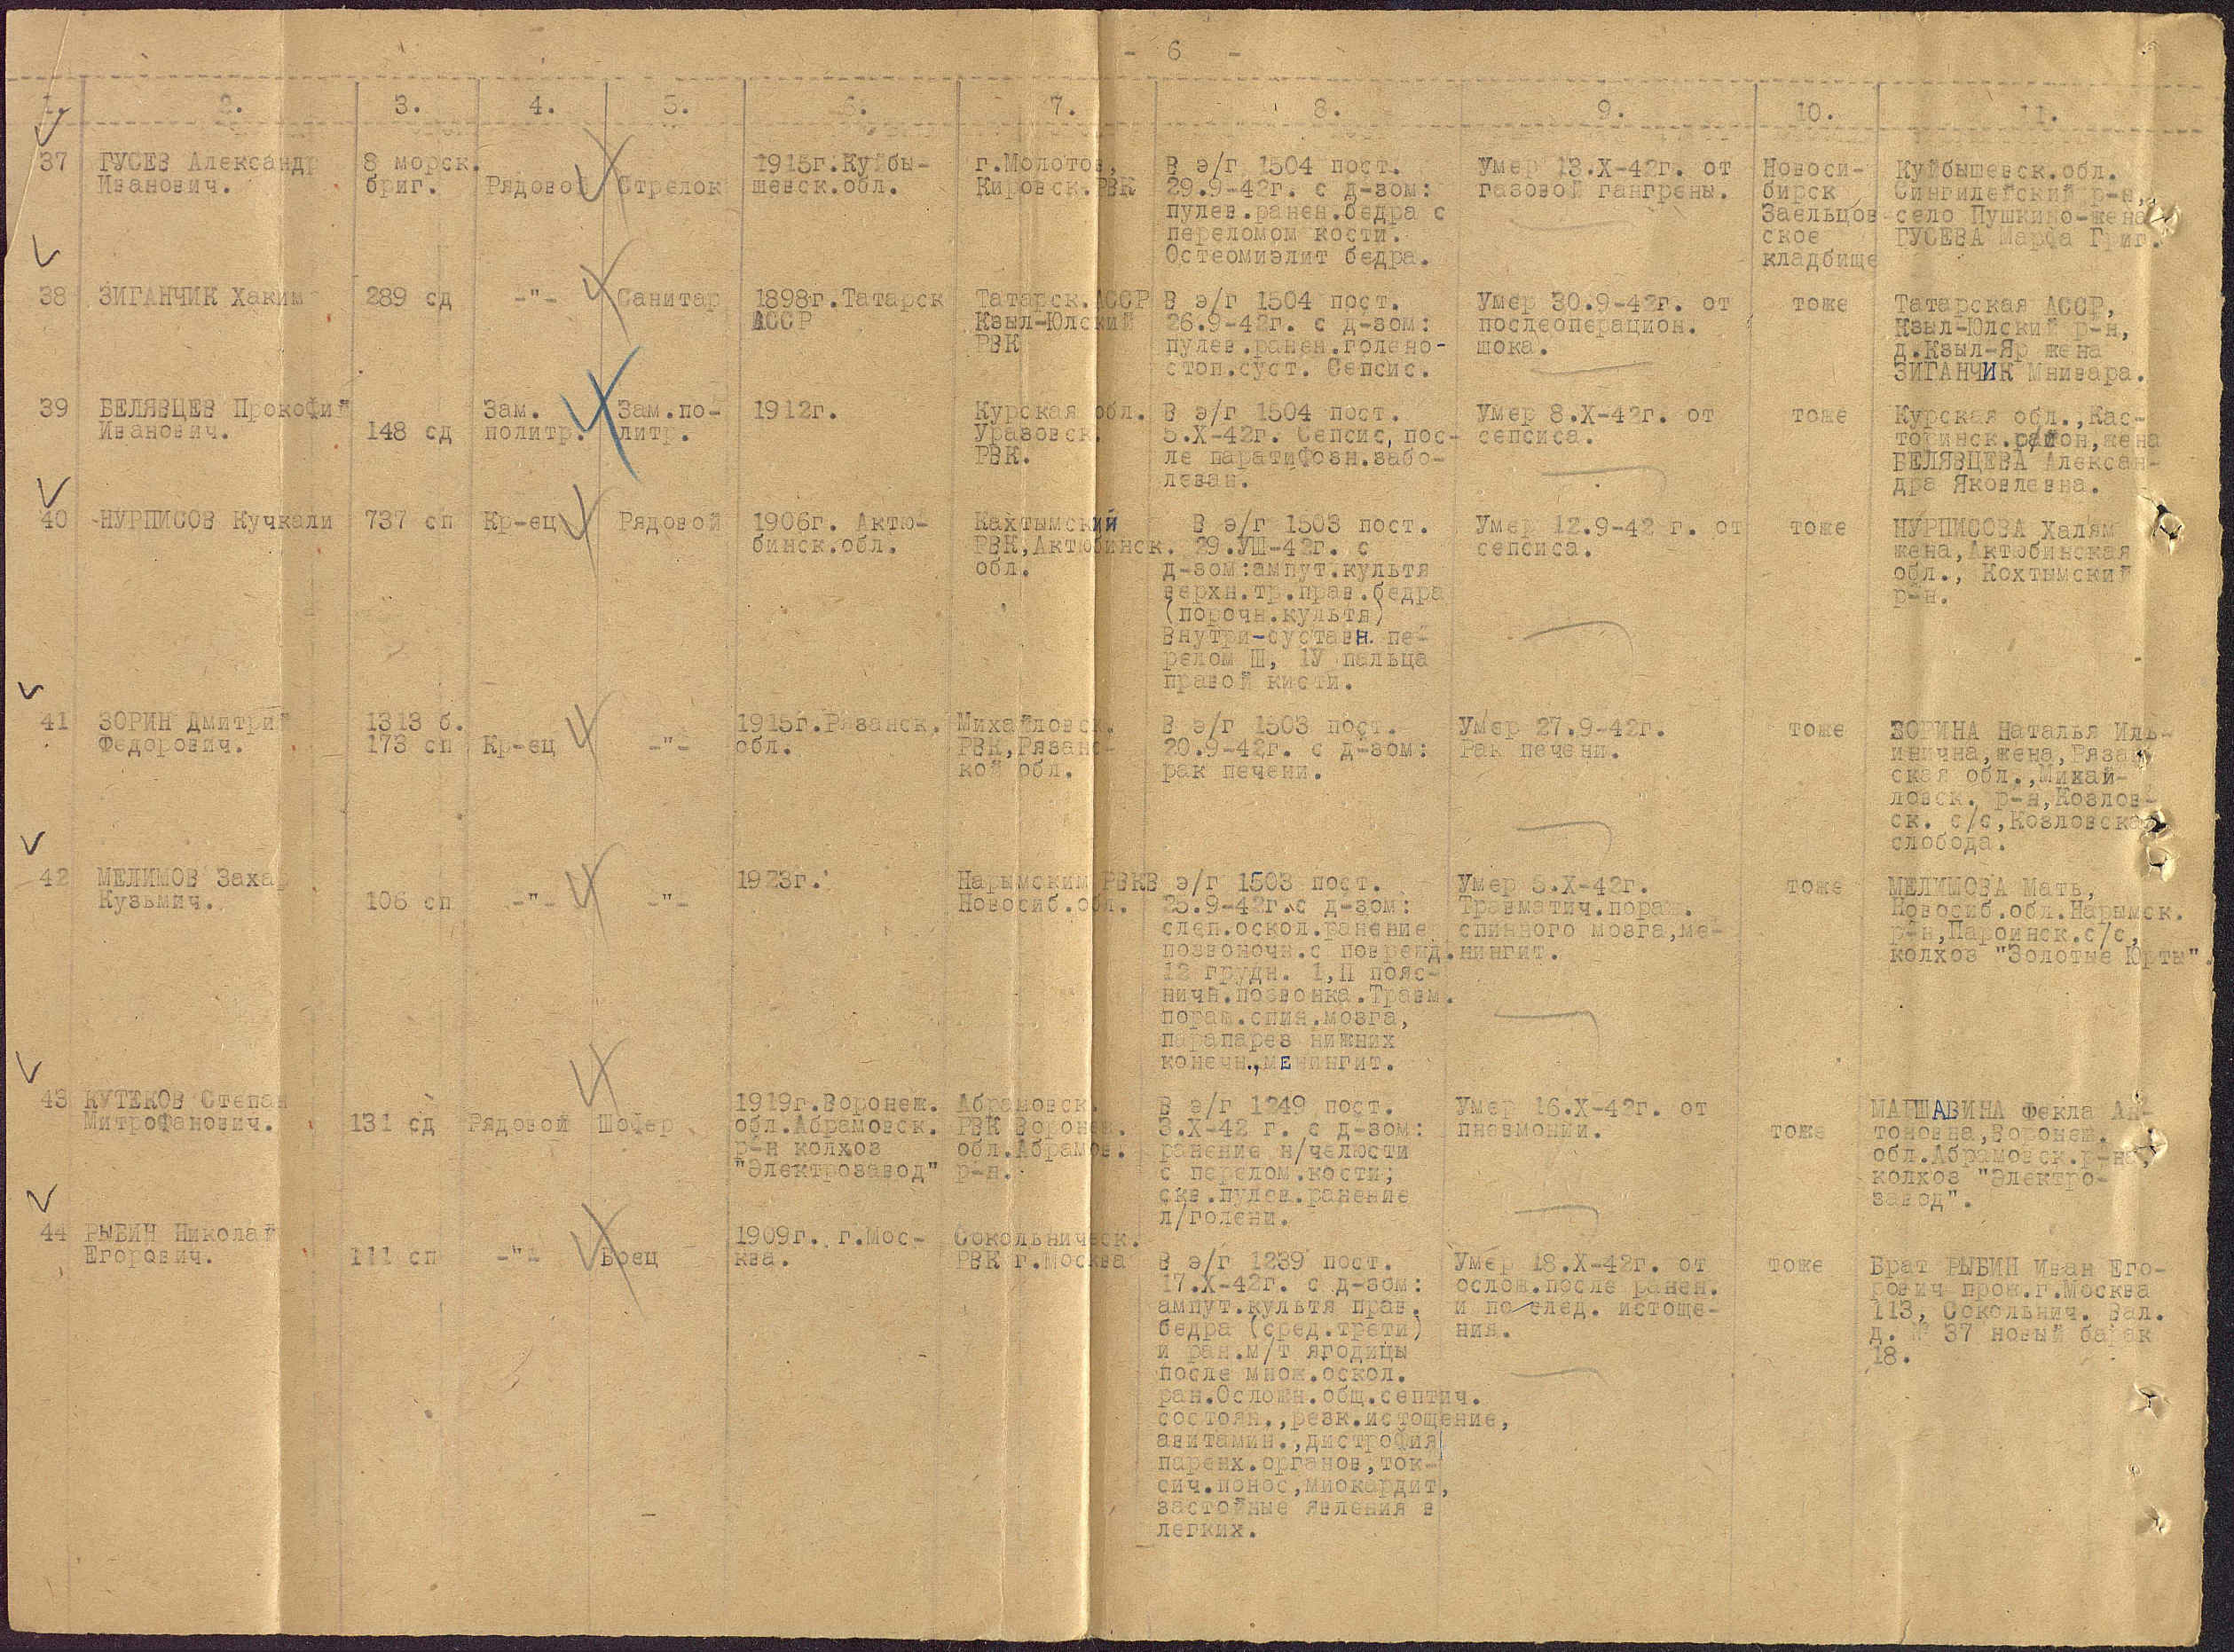 - 6 -
1. 2. 3. 4. 5. 6. 7. 8. 9. 10. 11.
37 ГУСЕВ Александр
Иванович.
8 морск.
бриг.
Рядовой
Стрелок
1915г.Куйбы-
шевск.обл.
г.Молотов,
Кировск.РВК
В э/г 1504 пост.
29.9-42г. с д-зом:
пулев.ранен.бедра с
переломом кости.
Остеомиэлит бедра.
Умер 13.Х-42г. от
газовой гангрены.
Новоси-
бирск
Заельцов-
ское
кладбище
Куйбышевск.обл.
Сингилейский р-н,
село Пушкино-жена
ГУСЕВА Марфа Григ.
38 ЗИГАНЧИК Хаким
289 сд
-"-
Санитар
1898г.Татарск
АССР
Татарск.АССР
Кзыл-Юлский
РВК
В э/г 1504 пост.
26.9-42г. с д-зом:
пулев.ранен.голено-
стоп.суст. Сепсис.
Умер 30.9-42г. от
послеоперацион.
шока.
тоже
Татарская АССР,
Кзыл-Юлский р-н,
д.Кзыл-Яр жена
ЗИГАНЧИК Мнивара.
39 БЕЛЯВЦЕВ Прокофий
Иванович.
148 сд
Зам.
политр.
Зам.по-
литр.
1912г.
Курская обл.
Уразовск.
РВК.
В э/г 1504 пост.
5.Х-42г. Сепсис, пос-
ле паратифозн.забо-
леван.
Умер 8.Х-42г. от
сепсиса.
тоже
Курская обл.,Кас-
торинск.район,жена
БЕЛЯВЦЕВА Алексан-
дра Яковлевна.
40 НУРПИСОВ Кучкали
737 сп
Кр-ец
Рядовой
1906г. Актю-
бинск.обл.
Кахтымский
РВК,Актюбинск.
обл.
В э/г 1503 пост.
29.УШ-42г. с
д-зом:ампут.культя
верхн.тр.прав.бедра
(порочн.культя)
Внутри-суставн. пе-
релом Ш, 1У пальца
правой кисти.
Умер 12.9-42 г. от
сепсиса.
тоже
НУРПИСОВА Халям
жена,Актюбинская
обл., Кохтымский
р-н.
41 ЗОРИН Дмитрий
Федорович.
1313 б.
173 сп
Кр-ец
-"-
1915г.Рязанск.
обл.
Михайловск.
РВК,Рязанс-
кой обл.
В э/г 1503 пост.
20.9-42г. с д-зом:
рак печени.
Умер 27.9-42г.
Рак печени.
тоже
ЗОРИНА Наталья Иль-
инична,жена,Рязан
ская обл.,Михай-
ловск. р-н,Козлов-
ск. с/с,Козловская
слобода.
42 МЕЛИМОВ Захар
Кузьмич.
106 сп
-"-
-"-
1923г.
Нарымским РВК
Новосиб.обл.
В э/г 1503 пост.
25.9-42г.с д-зом:
слеп.оскол.ранение
позвоночн.с поврежд.
12 грудн. 1,П пояс-
ничн.позвонка.Травм.
пораж.спин.мозга,
парапарез нижних
конечн.,менингит.
Умер 5.Х-42г.
Травматич.пораж.
спинного мозга,ме-
нингит.
тоже
МЕЛИМОВА Мать,
Новосиб.обл.Нарымск.
р-н,Пароинск.с/с,
колхоз "Золотые Юрты".
43 КУТЕКОВ Степан
Митрофанович.
131 сд
Рядовой
Шофер
1919г.Воронеж.
обл.Абрамовск.
р-н колхоз
"Электрозавод"
Абрамовск.
РВК Воронеж.
обл.Абрамов.
р-н.
В э/г 1249 пост.
3.Х-42 г. с д-зом:
ранение н/челюсти
с перелом.кости;
скв.пулев.ранение
л/голени.
Умер 16.Х-42г. от
пневмонии.
тоже
МАРШАВИНА Фекла Ан-
тоновна,Воронеж.
обл.Абрамовск.р-на,
колхоз "Электро-
завод".
44 РЫБИН Николай
Егорович.
111 сп
-"-
Боец
1909г. г.Мос-
ква.
Сокольническ.
РВК г.Москва
В э/г 1239 пост.
17.Х-42г. с д-зом:
ампут.культя прав.
бедра (сред.трети)
и ран.м/т ягодицы
после множ.оскол.
ран.Осложн.общ.септич.
состоян.,резк.истощение,
авитамин.,дистрофия
паренх.органов,ток-
сич.понос,миокардит,
застойные явления в
легких.
Умер 18.Х-42г. от
ослож.после ранен.
и послед. истоще-
ния.
тоже
Брат РЫБИН Иван Его-
рович прож.г.Москва
113, Сокольнич. Вал.
д. № 37 новый барак
18.